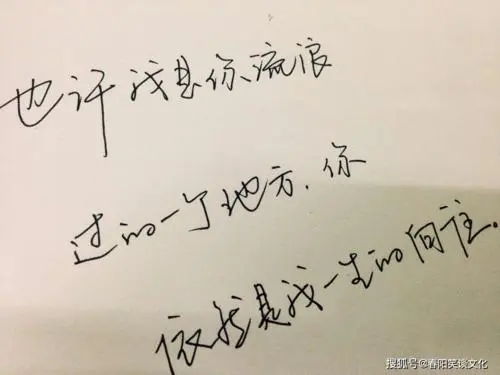 也许我是你流浪
过的一个地方.你
依然是我一生的向往.
搜狐号@春阳笑谈文化